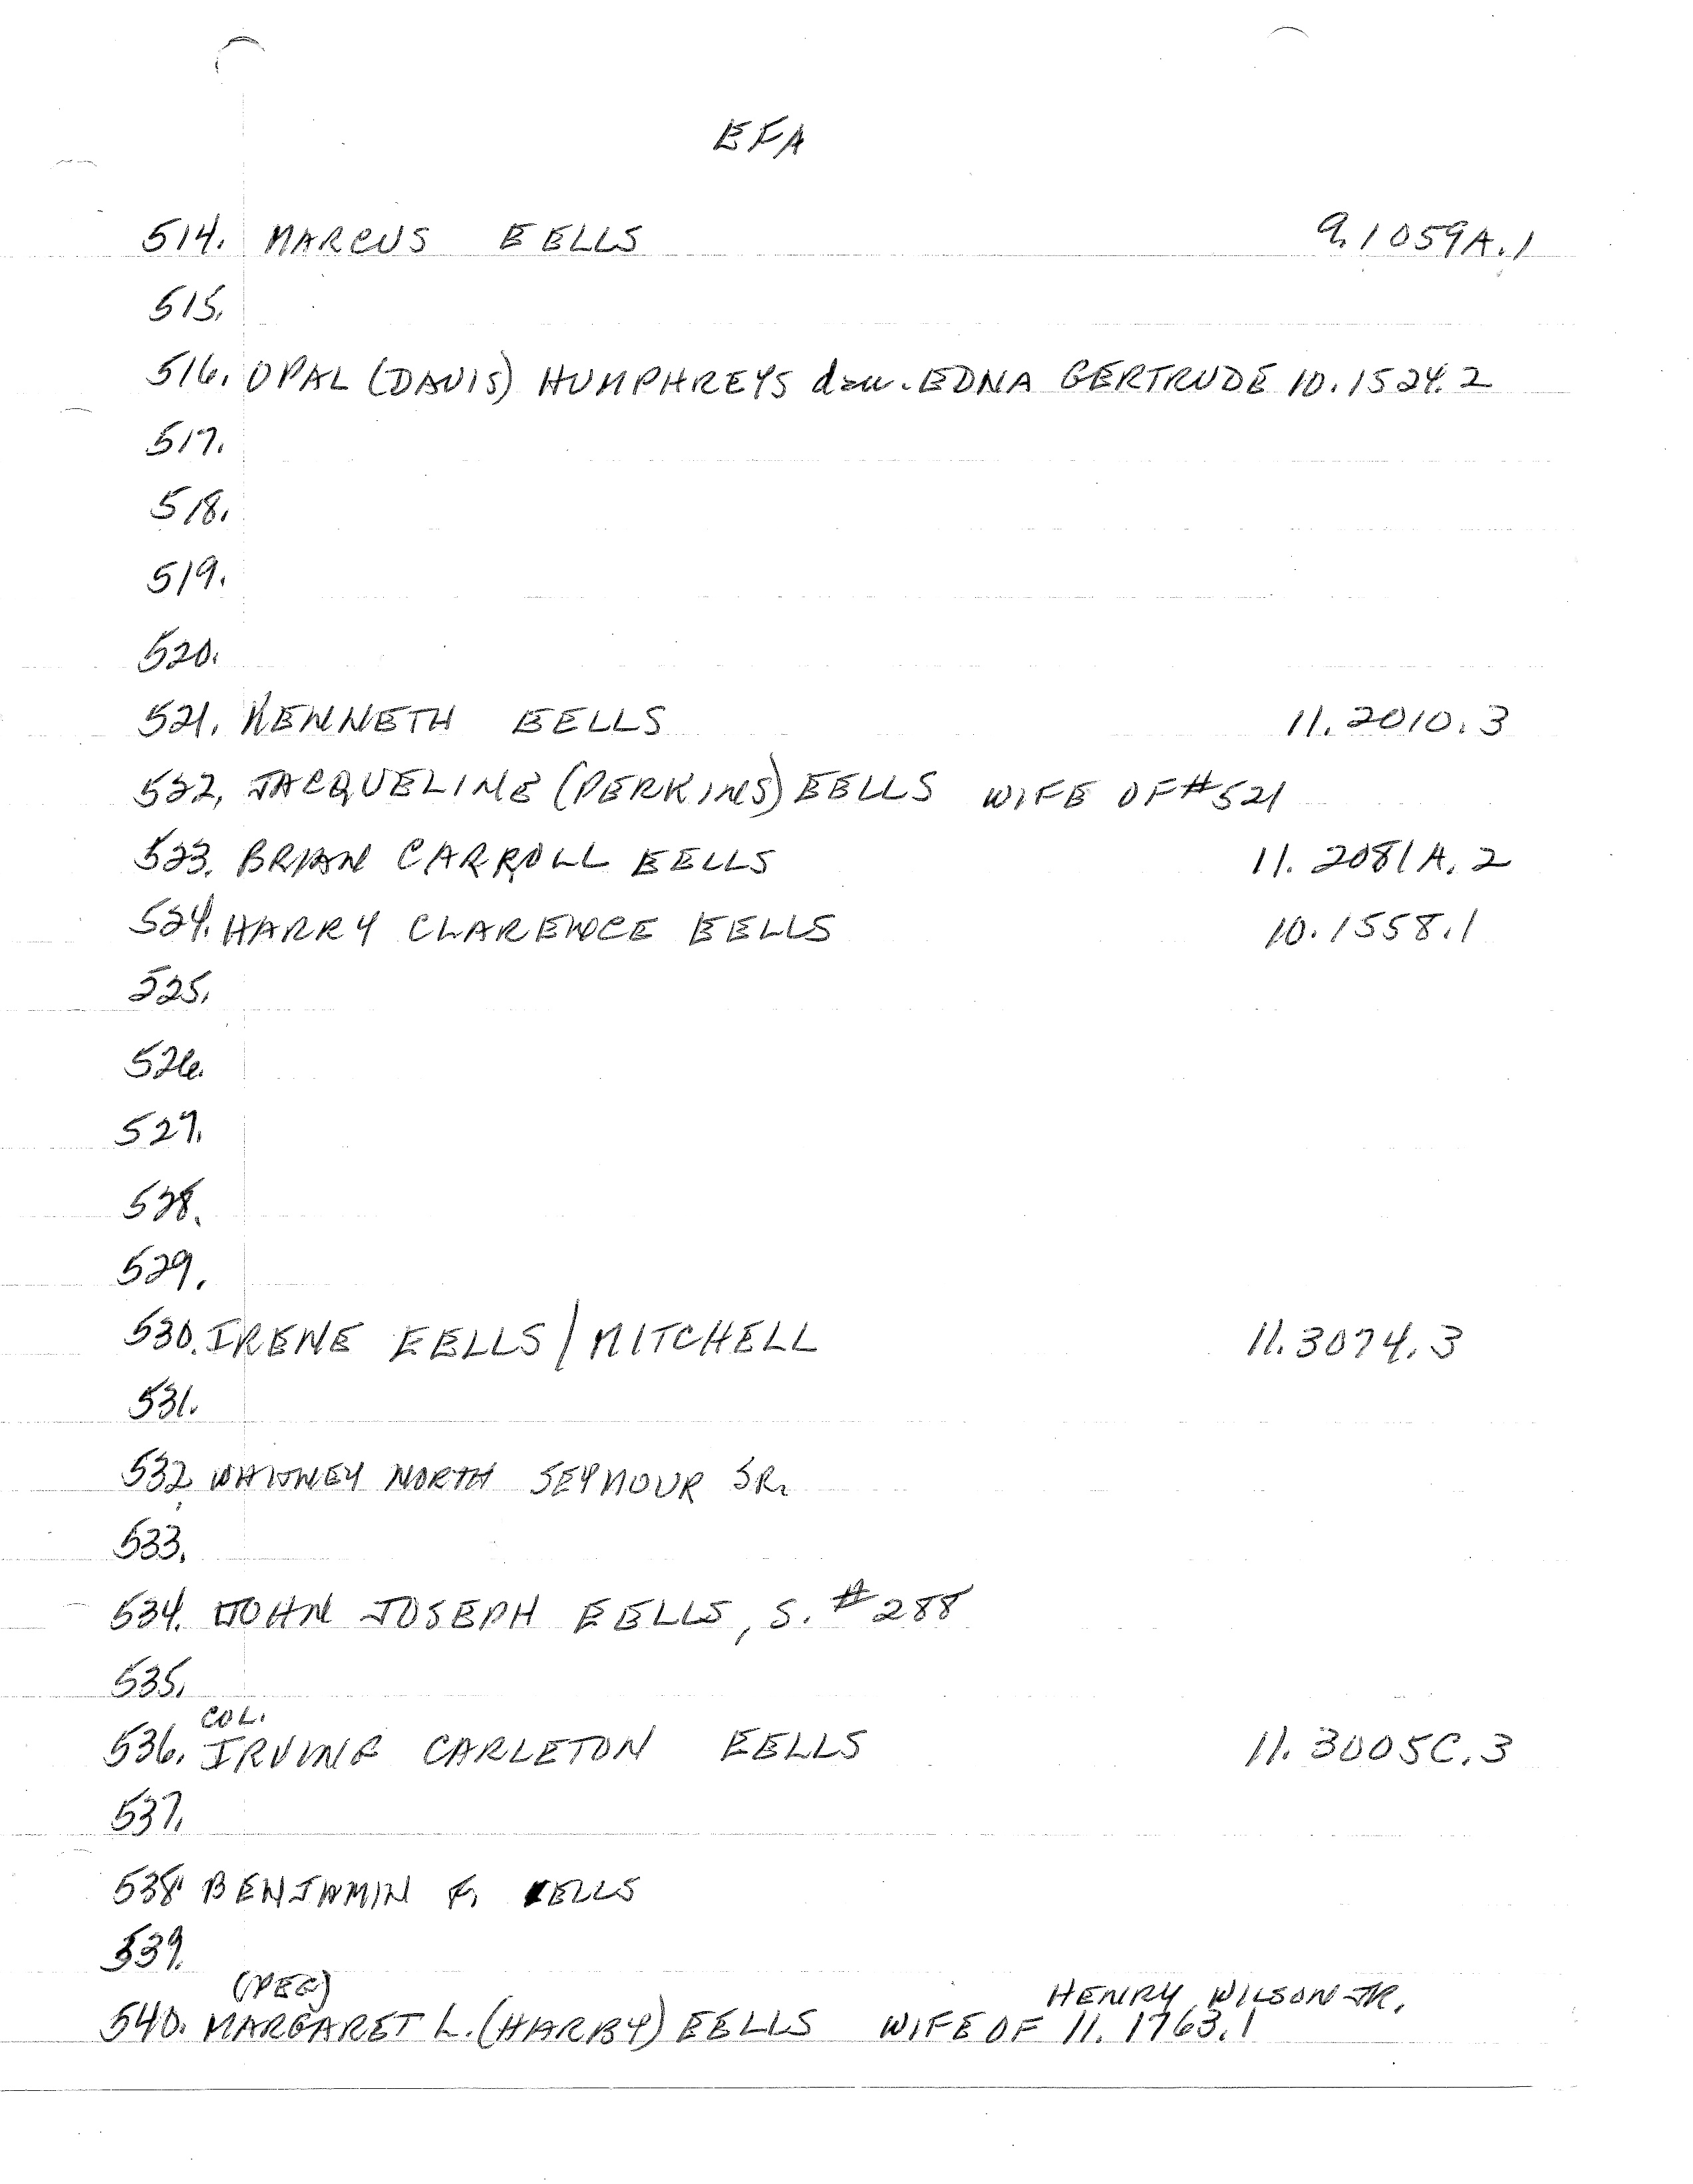 EFA
514. MARCUS EELLS 9.1059A.1
515.
516. OPAL (DAVIS) HUMPHREYS dau. EDNA GERTRUDE 10.1524.2
517.
518.
519.
520.
521. KENNETH EELLS 11.2010.3
522. JACQUELINE (PERKINS) EELLS WIFE OF #521
523. BRIAN CARROLL EELLS 11.2081A.2
524. HARRY CLARENCE EELLS 10.1558.1
525.
526.
527.
528.
529.
530. IRENE EELLS/MITCHELL 11.3074.3
531.
532. WHITNEY NORTH SEYMOUR SR.
533.
534. JOHN JOSEPH EELLS, S. #288
535.
COL.
536. IRVING CARLETON EELLS 11.3005C.3
537.
538. BENJAMIN F. EELLS
539.
(PEG) HENRY WILSON JR.
540. MARGARET L. (HARBY) EELLS WIFE OF 11.1763.1